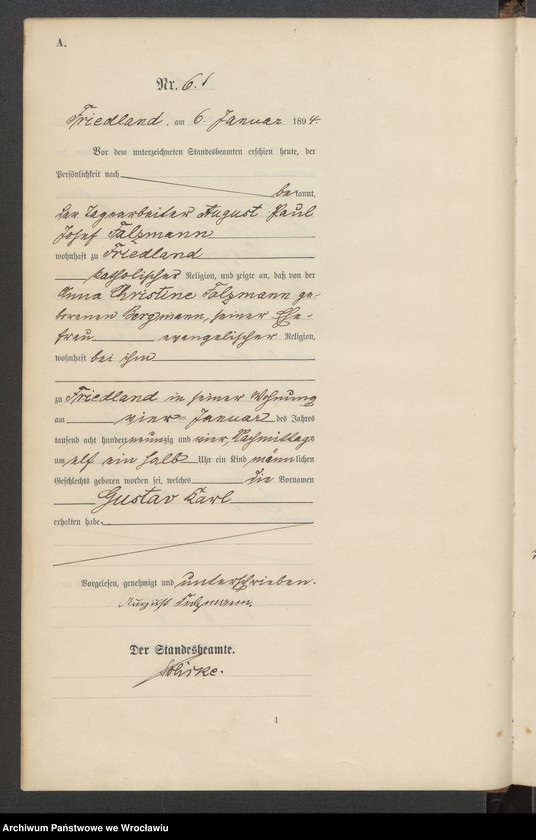 A.
Nr. 6.1
Friedland. am 6. Januar 1894.
Vor dem unterzeichneten Standesbeamten erschien heute, der
Persönlichkeit nach
bekannt,
der Tagearbeiter August Paul
Josef Falzmann
wohnhaft zu Friedland
katholischer Religion, und zeigte an, daß von der
Anna Christine Falzmann ge-
borenen Bergmann, seiner Ehe-
frau evangelischer Religion,
wohnhaft bei ihm
zu Friedland in seiner Wohnung
am vier ten Januar des Jahres
tausend acht hundert neunzig und vier, Nachmittags
um elf ein halb Uhr ein Kind männlichen
Geschlechts geboren worden sei, welches die Vornamen
Gustav Karl
erhalten habe.
Vorgelesen, genehmigt und unterschrieben.
August Falzmann.
Der Standesbeamte.
1
Archiwum Państwowe we Wrocławiu